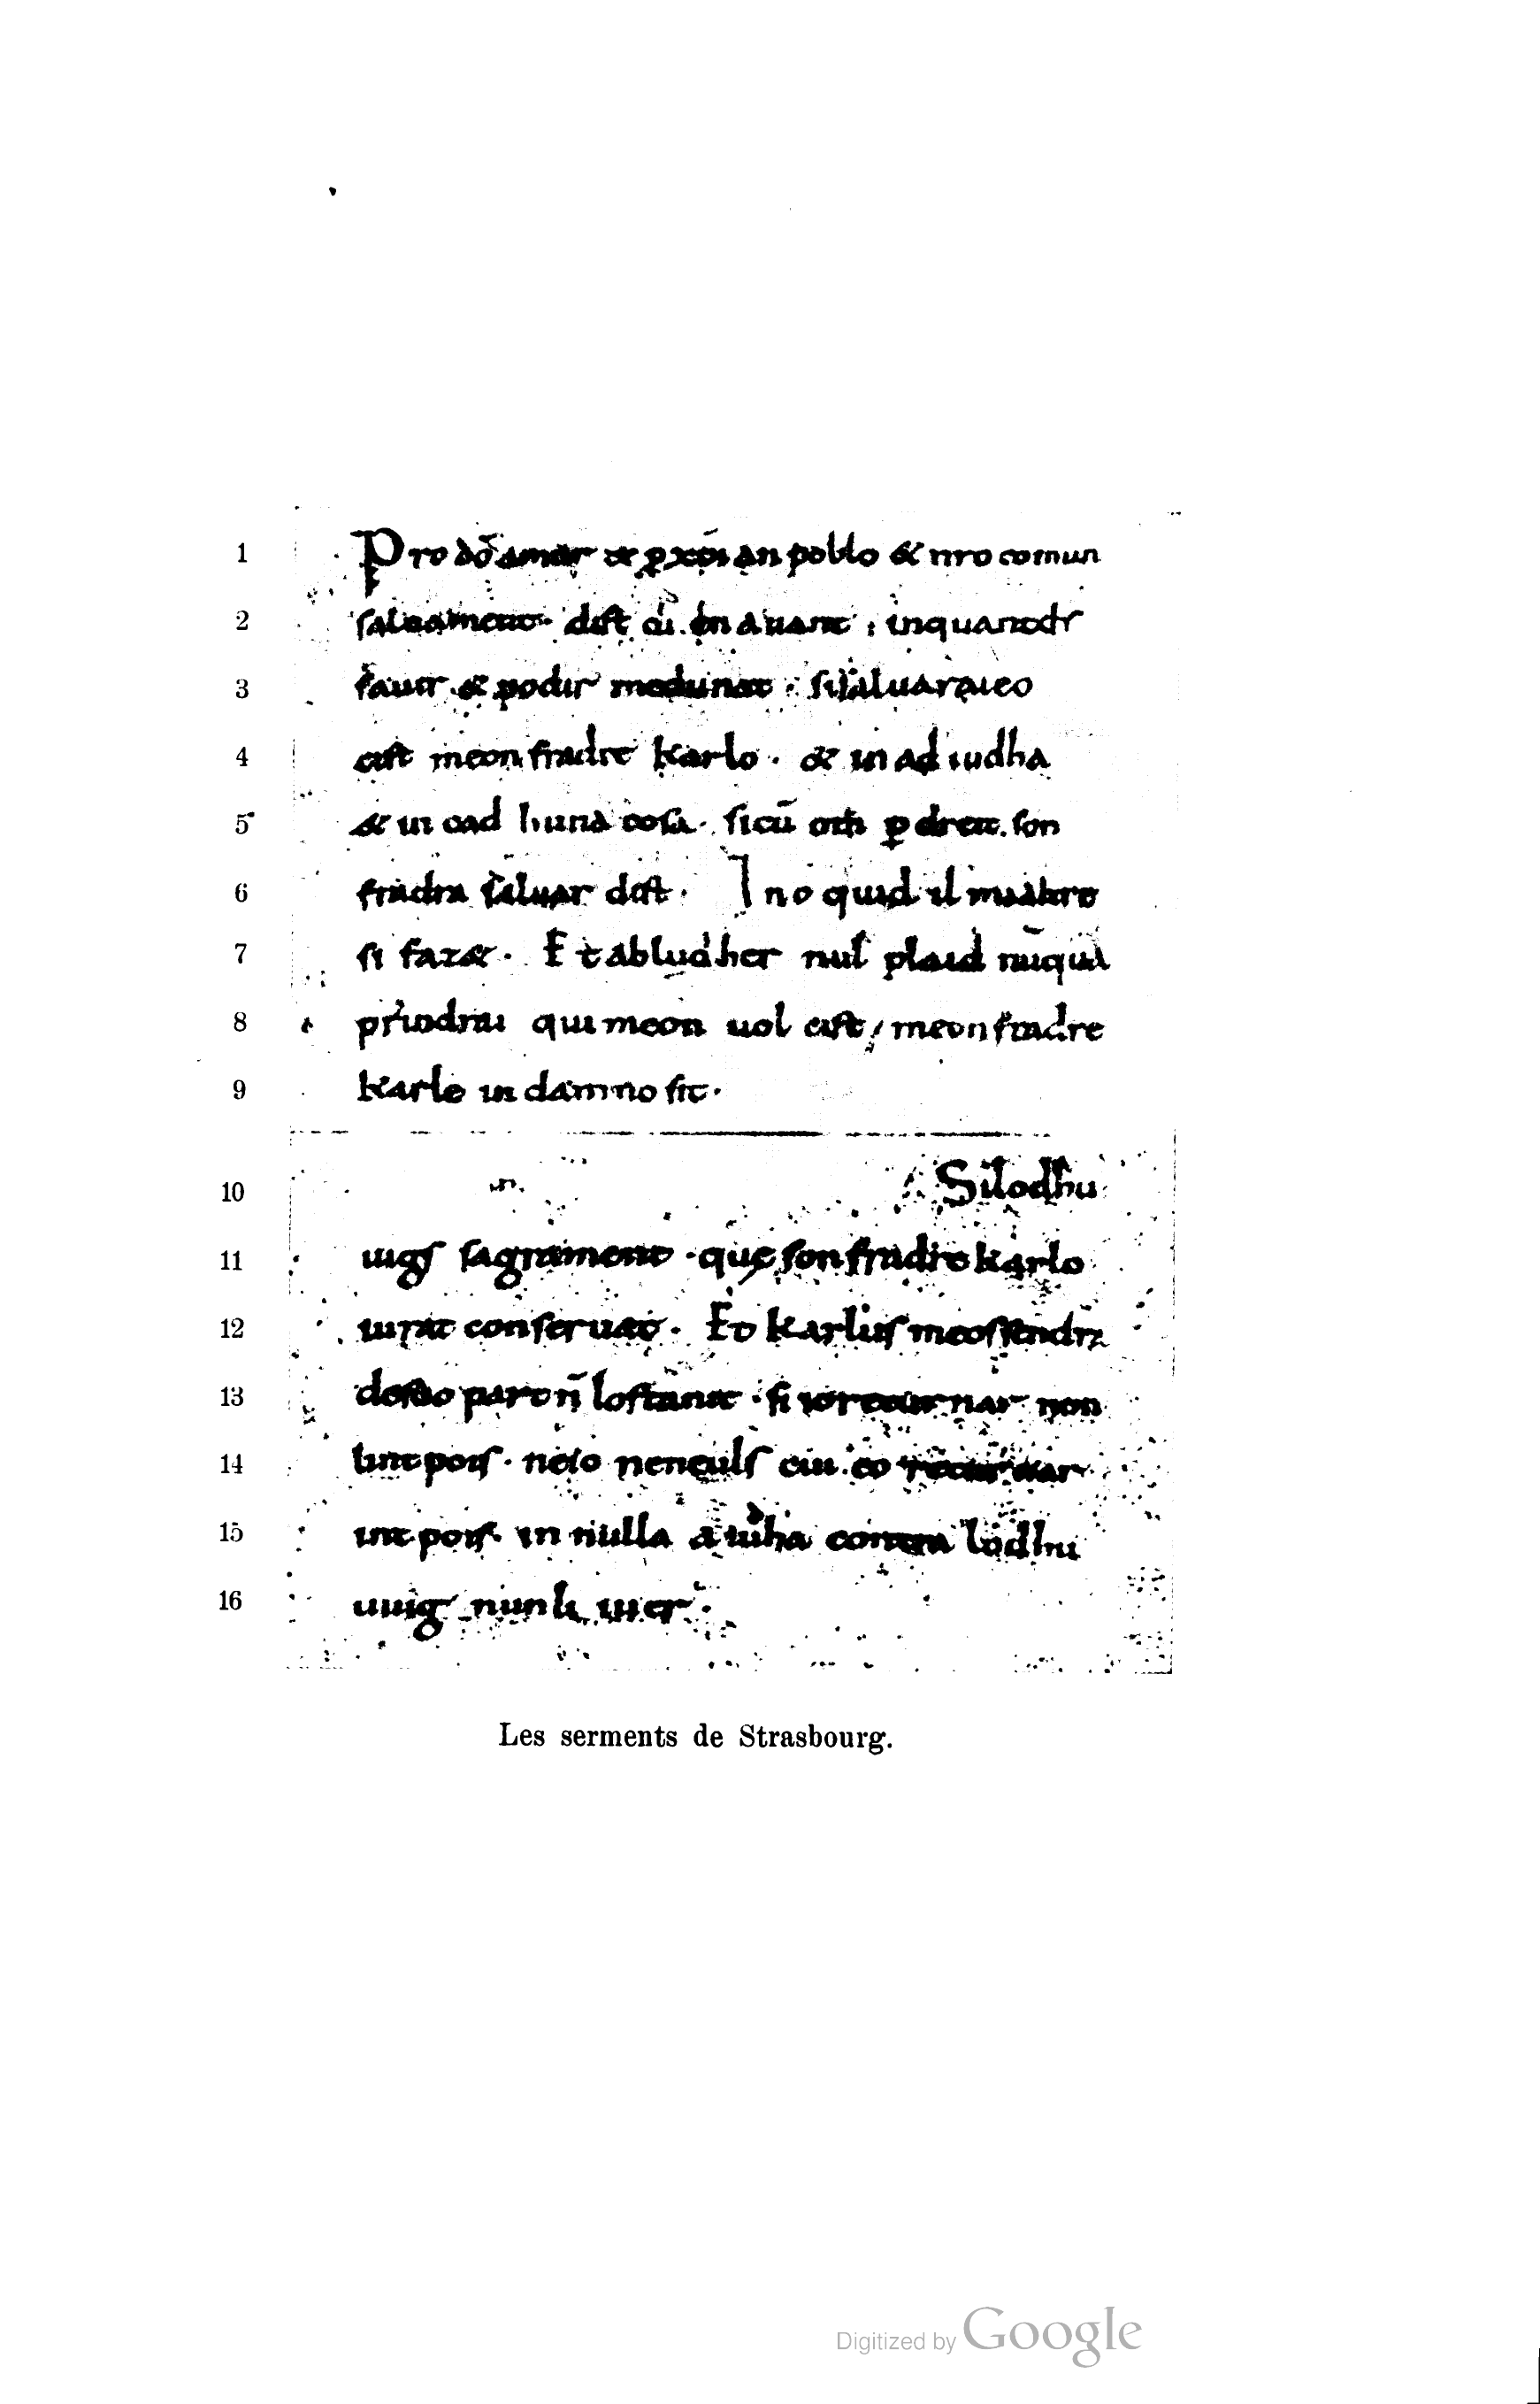 1 Pro dō amur & ꝑ xp̄ian poblo & nr̄o comun
2 saluament. dist di. en auant. inquantdſ
3 sauir & podir medunat. sisaluaraieo
4 cist meonfradre karlo. & in adiudha
5 & in cad huna cosa. sicū om ꝑ dreit. son
6 fradra saluar dist. Ino quid il mialtre
7 si faz&. Et abludher nul plaid nūquā
8 prindrai qui meon uol cist, meonfradre
9 karle in damno sit.
10 Silodhu
11 uigs sagrament. quę son fradre karlo
12 iurat conseruat. Et karlus meossendra
13 desuo part n̄ lostanit. si ioreturnar non
14 lint pois. neio neneuls cui eo returnar
15 int pois. in nulla aiudha contra lodhu
16 uuig nunli iuer.
Les serments de Strasbourg.
Digitized by Google